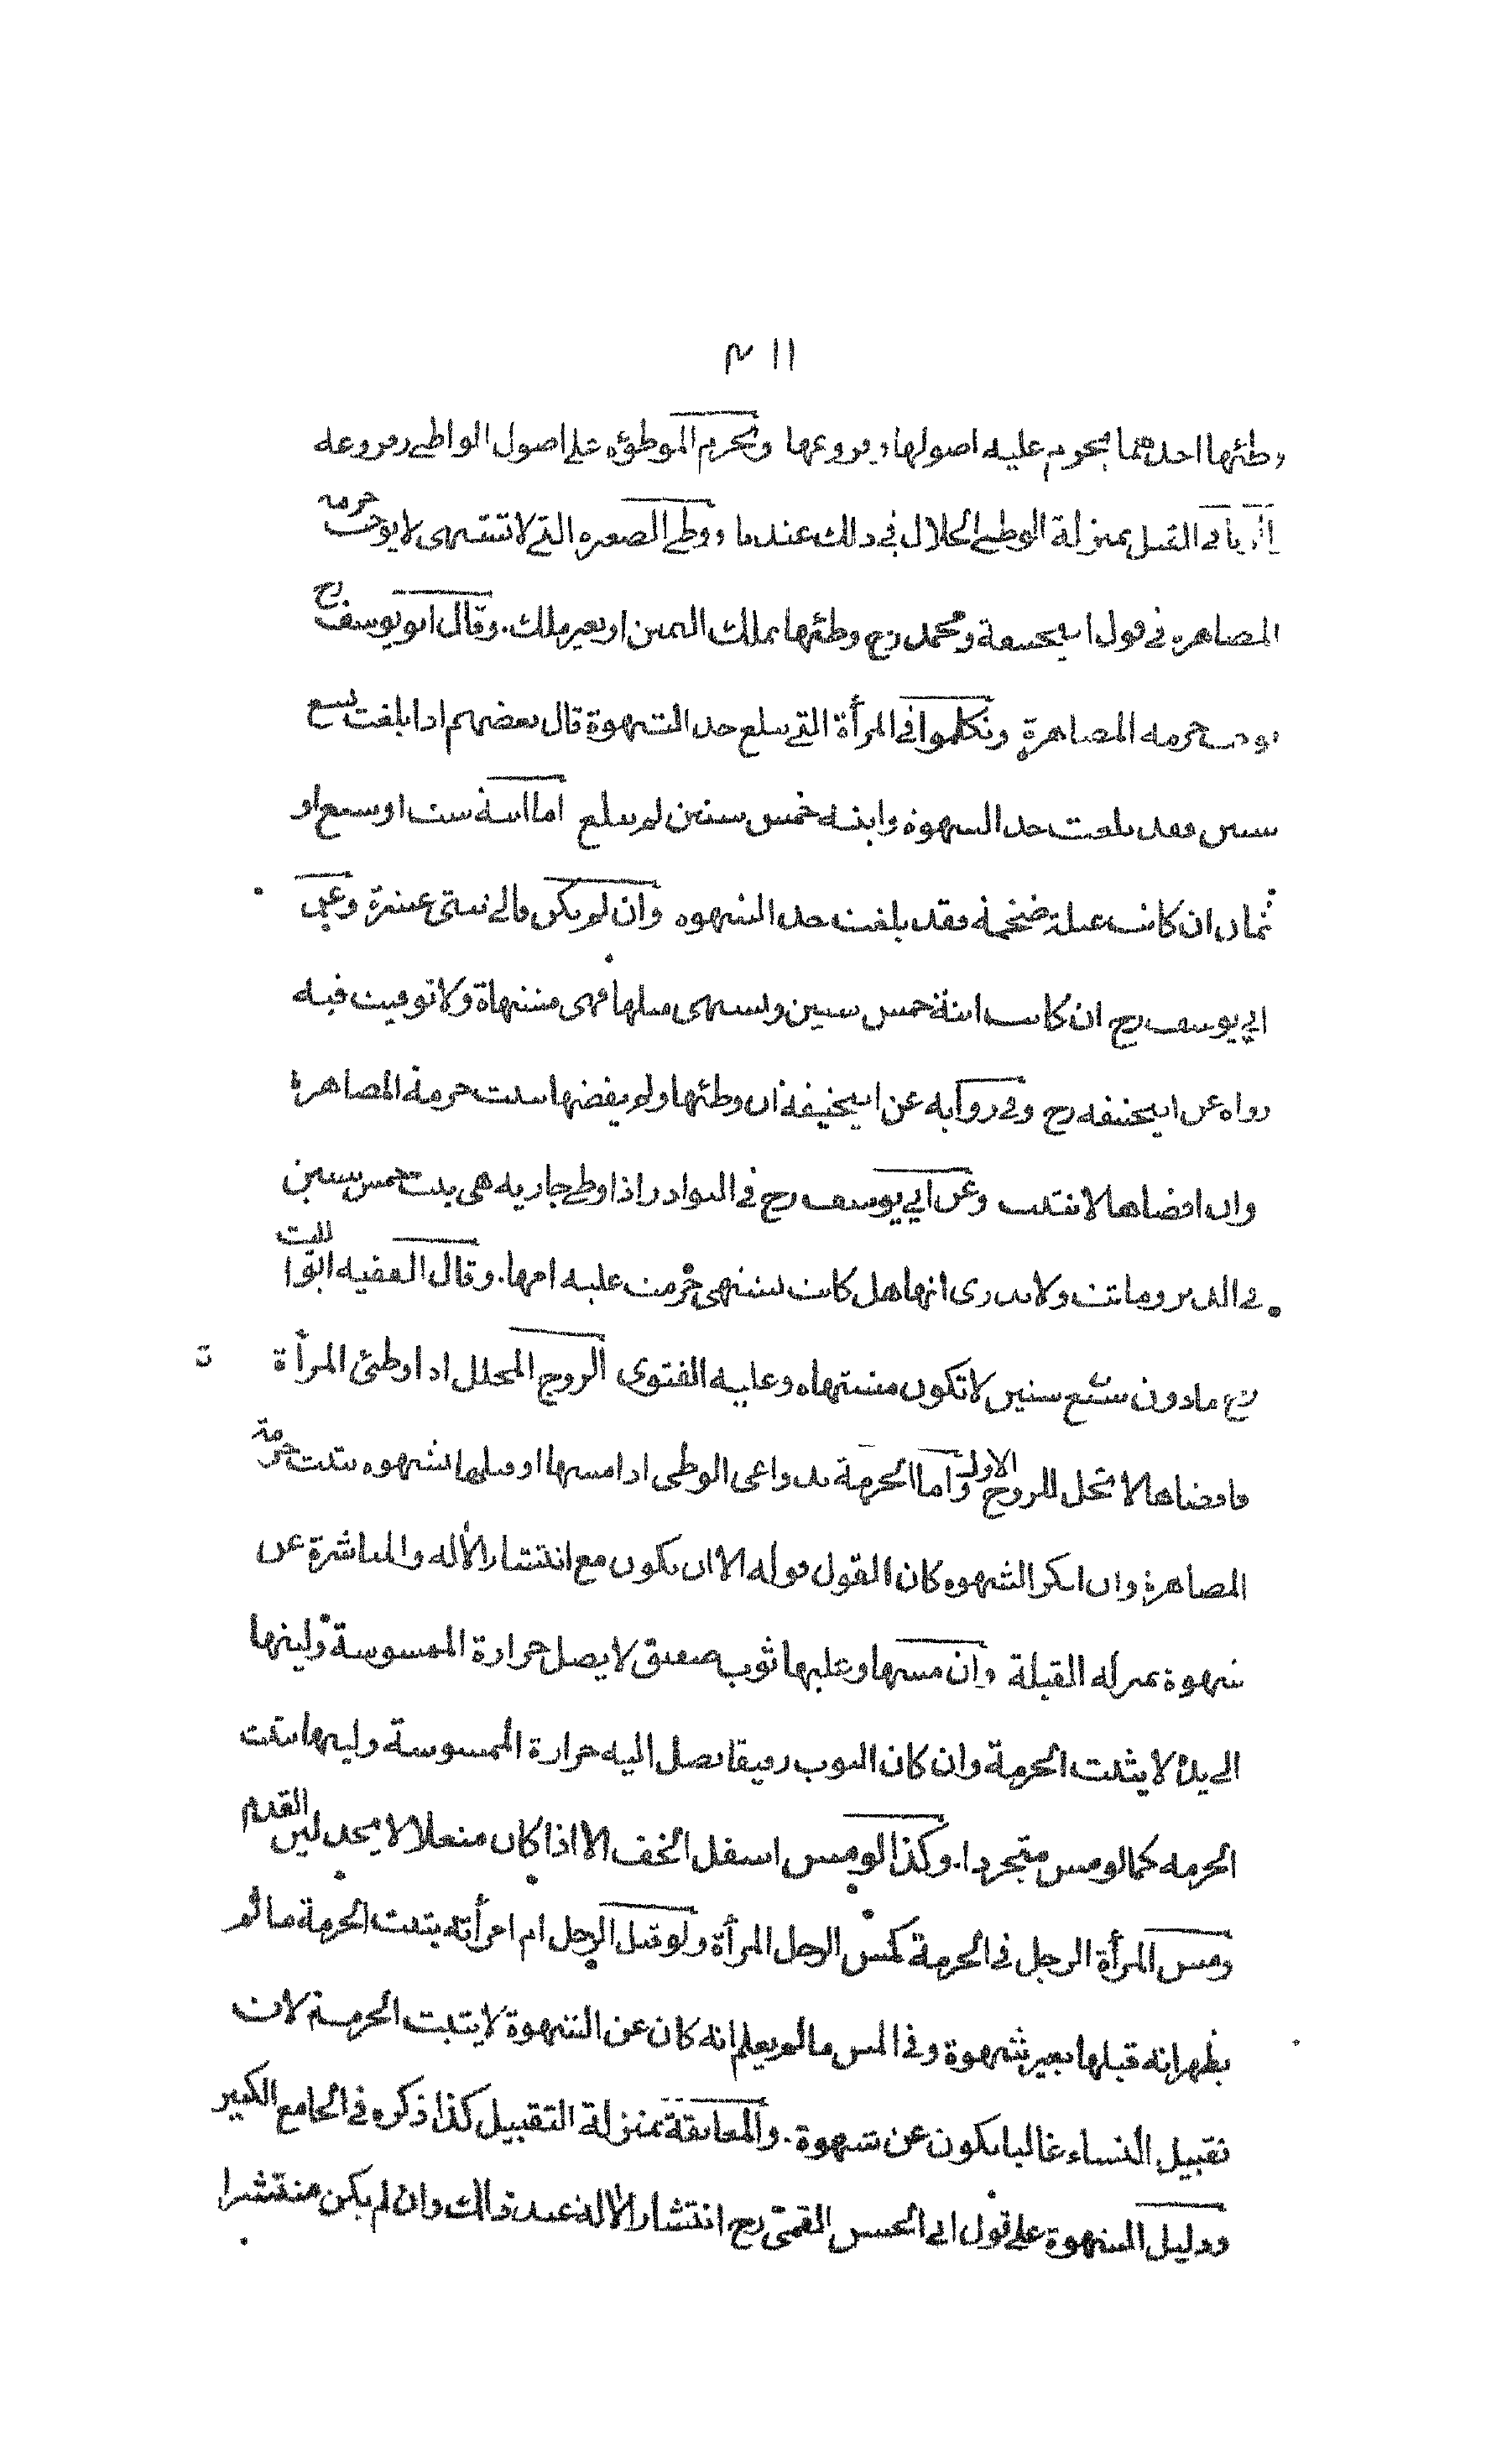 ١١ م
وطئها احدهما يحرم عليه اصولها وفروعها وتحرم الموطؤه على اصول الواطي وفروعه
الزنا في القبل بمنزلة الوطي الحلال في ذلك عندنا ووطي الصغيره التي لا تشتهى لا يوجب حرمه
المصاهره في قول ابيحنيفة ومحمد رح وطئها بملك اليمين او بغير ملك. وقال ابو يوسف رح
يوجب حرمه المصاهرة وتكلموا في المرأة التي تبلغ حد الشهوة قال بعضهم اذا بلغت تسع
سنين فقد بلغت حد الشهوة وابنة خمس سنين لم تبلغ اما ابنة ست او سبع او
ثمان ان كانت عبلة ضخمة فقد بلغت حد الشهوه وان لم يكن فالى ستى عشرة وعن
ابي يوسف رح ان كانت ابنة خمس سنين وتشتهى مثلها فهى مشتهاة ولا توقيت فيه
رواه عن ابيحنيفه رح وفي رواية عن ابيحنيفة ان وطئها ولم يفضها يثبت حرمة المصاهرة
وان افضاها لا تثبت وعن ابي يوسف رح في النوادر اذا وطي جاريه هى بنت خمس سنين
في الدبر وماتت ولا يدرى انها هل كانت تشتهى حرمت عليه امها. وقال الفقيه ابو الليث
رح مادون تسع سنين لا تكون مشتهاه وعليه الفتوى الزوج المحلل اذا وطئ المرأة
فافضاها لا تحل للزوج الاول واما الحرمة بدواعى الوطى اذا مسها او قبلها بشهوه يثبت حرمة
المصاهرة وان انكر الشهوه كان القول قوله الا ان يكون مع انتشار الآله والمباشرة عن
شهوة بمنزله القبلة وان مسها وعليها ثوب صفيق لا يصل حرارة الممسوسة ولينها
الى يده لا يثبت الحرمة وان كان الثوب رقيقا يصل اليه حرارة الممسوسة ولينها يثبت
الحرمه كما لو مس متجردا. وكذا لو مس اسفل الخف الا اذا كان منعلا لا يجد لين القدم
ومس المرأة الرجل في الحرمة كمس الرجل المرأة ولو قبل الرجل ام امرأته يثبت الحرمة ما لم
يظهر انه قبلها بغير شهوة وفي المس ما لم يعلم انه كان عن الشهوة لا يثبت الحرمة لان
تقبيل النساء غالبا يكون عن شهوة. والمعانقة بمنزلة التقبيل كذا ذكره في الجامع الكبير
ودليل الشهوة على قول ابي الحسن القمي رح انتشار الآلة عند ذلك وان لم يكن منتشرا